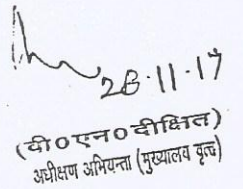 28.11.17
(वी०एन०दीक्षित)
अधीक्षण अभियन्ता (मुख्यालय वृत्त)